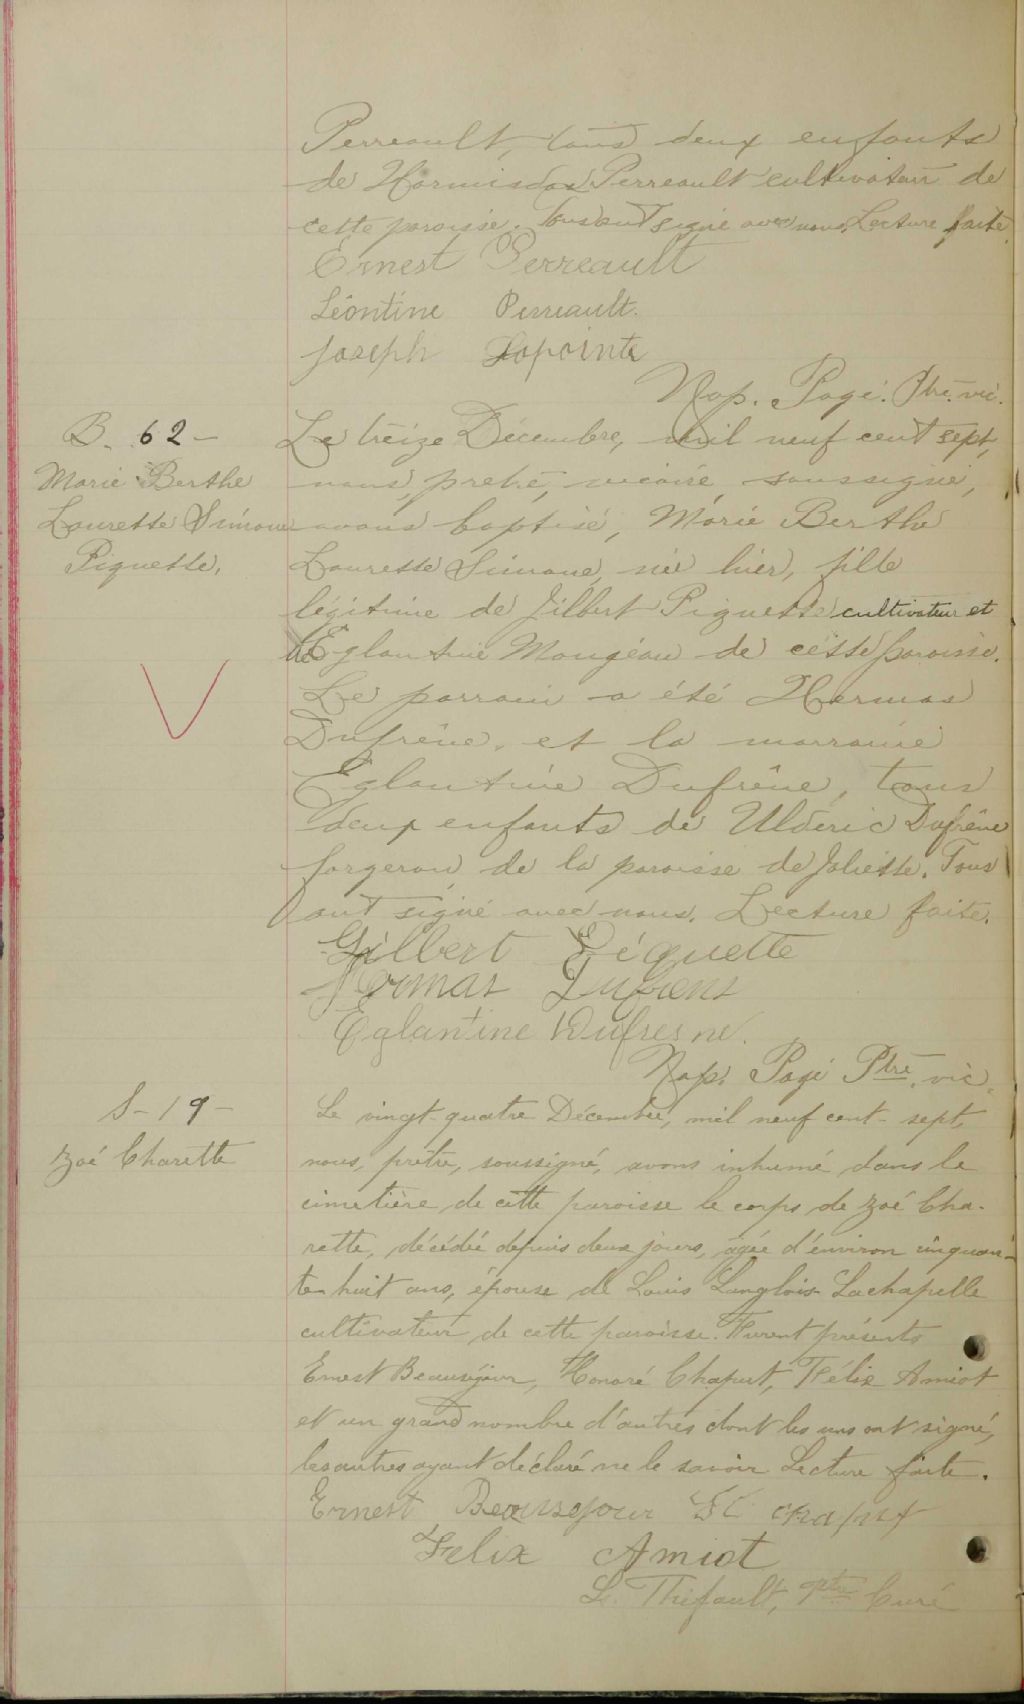 Perreault, tous deux enfants
de Hormisdas Perreault cultivateur de
cette paroisse. Tous ont signé avec nous. Lecture faite.
Ernest Perreault
Léontine Perreault.
Joseph Lapointe
Nap. Pagé. Ptre. vic.
B. 62 -
Marie Berthe
Laurette Simone
Piquette.
Le treize Décembre, mil neuf cent sept,
nous, pretre, vicaire, soussigné,
avons baptisé, Marie Berthe
Laurette Simone, née hier, fille
légitime de Jilbert Piquette cultivateur et
Eglantine Mangéau de cette paroisse.
Le parrain a été Hermas
Dufrêne, et la marraine
Eglantine Dufrêne, tous
deux enfants de Ulderic Dufrêne
forgeron, de la paroisse de Joliette. Tous
ont signé avec nous. Lecture faite.
Gilbert Piquette
Hormas Dufrens
Eglantine Dufresne.
Nap. Pagé Ptre. vic.
S - 19 -
Zoé Charette
Le vingt-quatre Décembre, mil neuf cent-sept,
nous, prêtre, soussigné, avons inhumé dans le
cimetière de cette paroisse le corps de Zoé Cha-
rette, décédée depuis deux jours, âgée d'environ cinquan-
te-huit ans, épouse de Louis Langlois-Lachapelle
cultivateur de cette paroisse. Furent présents
Ernest Beauséjour, Honoré Chaput, Félix Amiot
et un grand nombre d'autres dont les uns ont signé,
les autres ayant déclaré ne le savoir Lecture faite.
Ernest Beausejour chaput
Felix Amiot
L. Thifault, ptre Curé